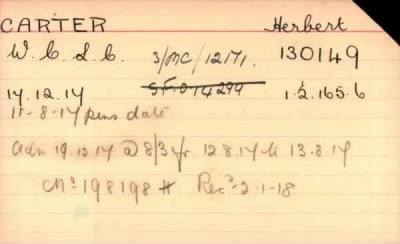 CARTER Herbert
W. C. & C. 3/MC/12171. 130149
17.12.17 S.F.014299 1.2.165.6
11-8-17 pens date
Adm 19.12.17 @ 8/3 fr 12.8.17 to 13.8.19
CNº 198198 Recd 2-1-18